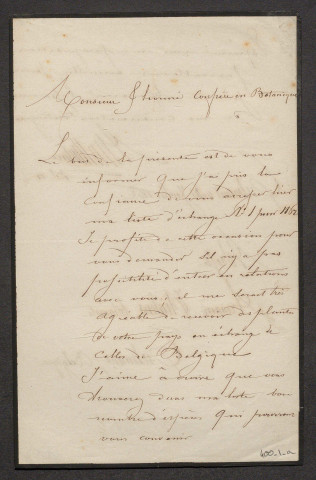 Monsieur & honoré Confrère en Botanique
Le but de la présente est de vous
informer que j'ai pris la
de vous
ma liste d'échange No 1 pour 1862
Je profite de cette occasion pour
vous demander s'il n'y a pas
possibilité d'entrer en relations
avec vous, il me serait très
agréable de recevoir des plantes
de votre pays en échange de
celles de Belgique
J'aime à croire que vous
trouverez dans ma liste bon
nombre d'espèces qui pourront
vous convenir